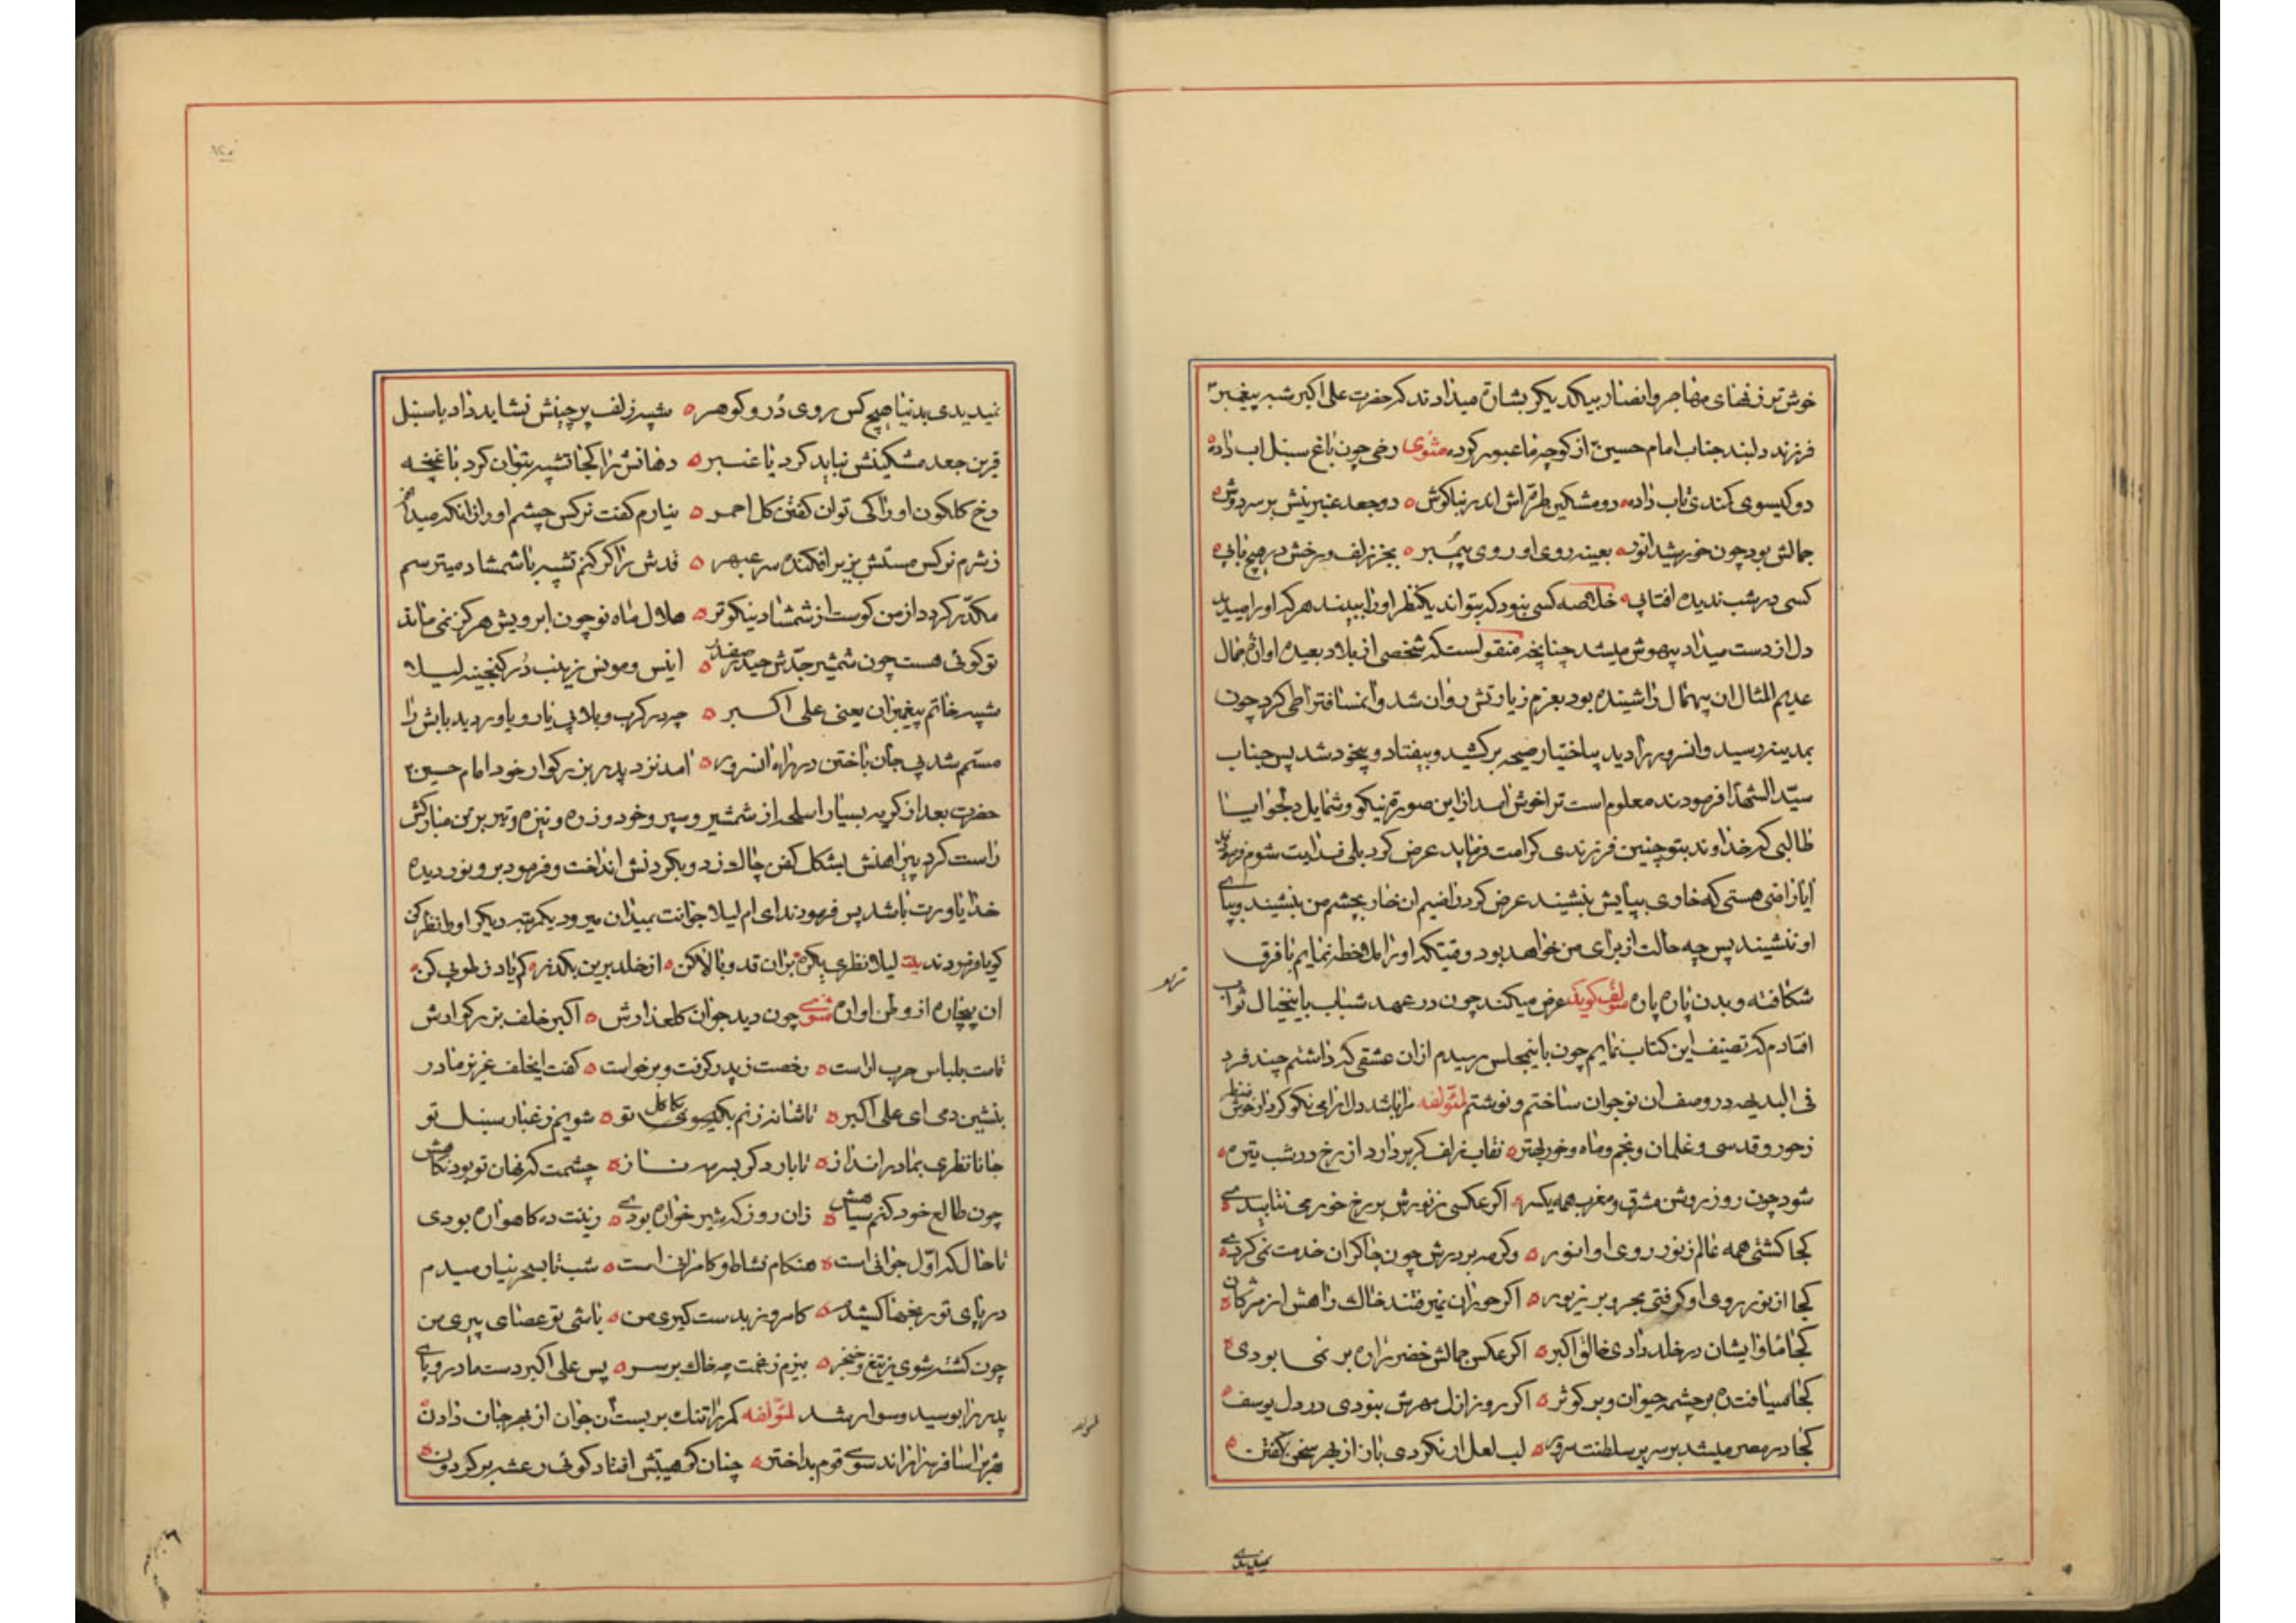 خوش تر زنهای مهاجر و انصار بیکدیکر بشارة میدادند که حضرت علی اکبر شبه پیغمبر
فرزند دلبند جناب امام حسین از کوچه ما عبور کرد مثنوی رخی چون باغ سنبل اب داده
دو کیسوی کمندی تاب داده دو مشکین طره اش اندر بناکوش دو جعد عنبرینش بر سر دوش
جمالش بود چون خورشید انور بعینه روی او روی پیمبر بجز زلف و رخش در هیچ بابی
کسی در شب ندیده افتابی خلاصه کسی نبود که بتواند یکنظر او را ببیند هر که او را میدید
دل از دست میداد بیهوش میشد چنانچه منقولست که شخصی از بلاد بعیده اوازه جمال
عدیم المثال ان بیهمال را شنیده بود بعزم زیارتش روان شد و انمسافت را طی کرد چون
بمدینه رسید و انسرور را دید بیاختیار صیحه برکشید و بیفتاد و بیخود شد پس جناب
سید الشهدا فرمودند معلوم است ترا خوش امد از این صورة نیکو و شمایل دلجو ایا
طالبی که خداوند بتو چنین فرزندی کرامت فرماید عرض کرد بلی فدایت شوم فرمودند
ایا راضی هستی که خاری بپایش بنشیند عرض کرد راضیم ان خار بچشم من بنشیند و بپای
او ننشیند پس چه حالت از برای من خواهد بود وقتیکه او را ملاحظه نمایم با فرق
شکافته و بدن پاره پاره مؤلف کوید عرض میکند چون در عهد شباب باینخیال ثواب
افتادم که تصنیف این کتاب نمایم چون باینمجلس رسیدم از ان عشقی که داشتم چند فرد
فی البدیهه در وصف ان نوجوان ساختم و نوشتم لمؤلفه مرا باشد دلارامی نکو کردار خوش منظر
ز حور و قدسی و غلمان و نجم و ماه و خور بهتر نقاب زلف کر بردارد از رخ در شب تیره
شود چون روز روشن مشرق و مغرب همه یکسر اکر عکسی ز نورش بر رخ خور می نتابیدی
کجا کشتی همه عالم ز نور روی او انور و کر مه بر درش چون چاکران خدمت نمی کردی
کجا از نور روی او کرفتی بحر و بر زیور اکر حوران نمیرفتند خاک راهش از مژکان
کجا ماوا ایشان در خلد دادی خالق اکبر اکر عکس جمالش خضر را رهبر نمی بودی
کجا میافت ره بر چشمه حیوان و بر کوثر اکر روز ازل مهرش نبودی در دل یوسف
کجا در مصر میشد بر سریر سلطنت سرور لب لعل ار نکردی باز از بهر سخن کفتن
نمیدیدی بدنیا هیچ کس روی در و کوهر شبیه زلف پر چینش نشاید داد با سنبل
قرین جعد مشکینش نباید کرد با عنبر دهانش را کجا تشبیه بتوان کرد با غنچه
رخ کلکون او را کی توان کفتن کل احمر نیارم کفت نرکس چشم او را زانکه میدانم
ز شرم نرکس مستش بزیر افکنده سر عبهر قدش را کر کنم تشبیه با شمشاد میترسم
مکدر کردد از من کوست از شمشاد نیکوتر هلال ماه نو چون ابرویش هرکز نمی ماند
تو کوئی هست چون شمشیر جدش حیدر صفدر انیس و مونس زینب در کنجینه لیلا
شبیه خاتم پیغمبران یعنی علی اکبر چه در کرب و بلا بی یار و یاور دید بابش را
مصمم شد پی جان باختن در راه انسرور امد نزد پدر بزرکوار خود امام حسین
حضرت بعد از کریه بسیار اسلحه از شمشیر و سپر و خود و زره و نیزه و تیر بر تن مبارکش
راست کرد پیراهنش بشکل کفن چاک زد و بکردنش انداخت و فرمود برو نور دیده
خدا یاورت باشد پس فرمودند ای ام لیلا جوانت بمیدان میرود یکمرتبه دیکر او را نظر کن
کویا فرمودند بیت لیلا نظری بکن بران قد و بالا کن از خلد برین بکذر کم یاد ز طوبی کن
ان بیچاره از وطن اواره مثنوی چون دید جوان کلعذارش اکبر خلف بزرکوارش
قامت بلباس حرب اراست رخصت ز پدر کرفت و برخواست کفت ایخلف عزیز مادر
بنشین دمی ای علی اکبر تا شانه زنم بکاکل تو شویم ز غبار سنبل تو
جانا نظری بمادر انداز تا بارد کر بسرمه ناز چشمت که نهان تو بود نکاهش
چون طالع خود کنم سیاهش زان روز که شیر خواره بودی زینت ده کاهواره بودی
تا حال که اول جوانی است هنکام نشاط و کامرانی است شب تا بسحر نیارمیدم
در پای تو رنجها کشیدم کامروز بدست کیری من باشی تو عصای پیری من
چون کشته شوی ز تیغ و خنجر بیزم ز غمت چه خاک بر سر پس علی اکبر دست مادر و پای
پدر را بوسید و سوار شد لمؤلفه کمر را تنک بر بست ان جوان از بهر جان دادن
فرس را راند سوی قوم بداختر چنان کز هیبتش افتاد کوئی رعشه بر کردون